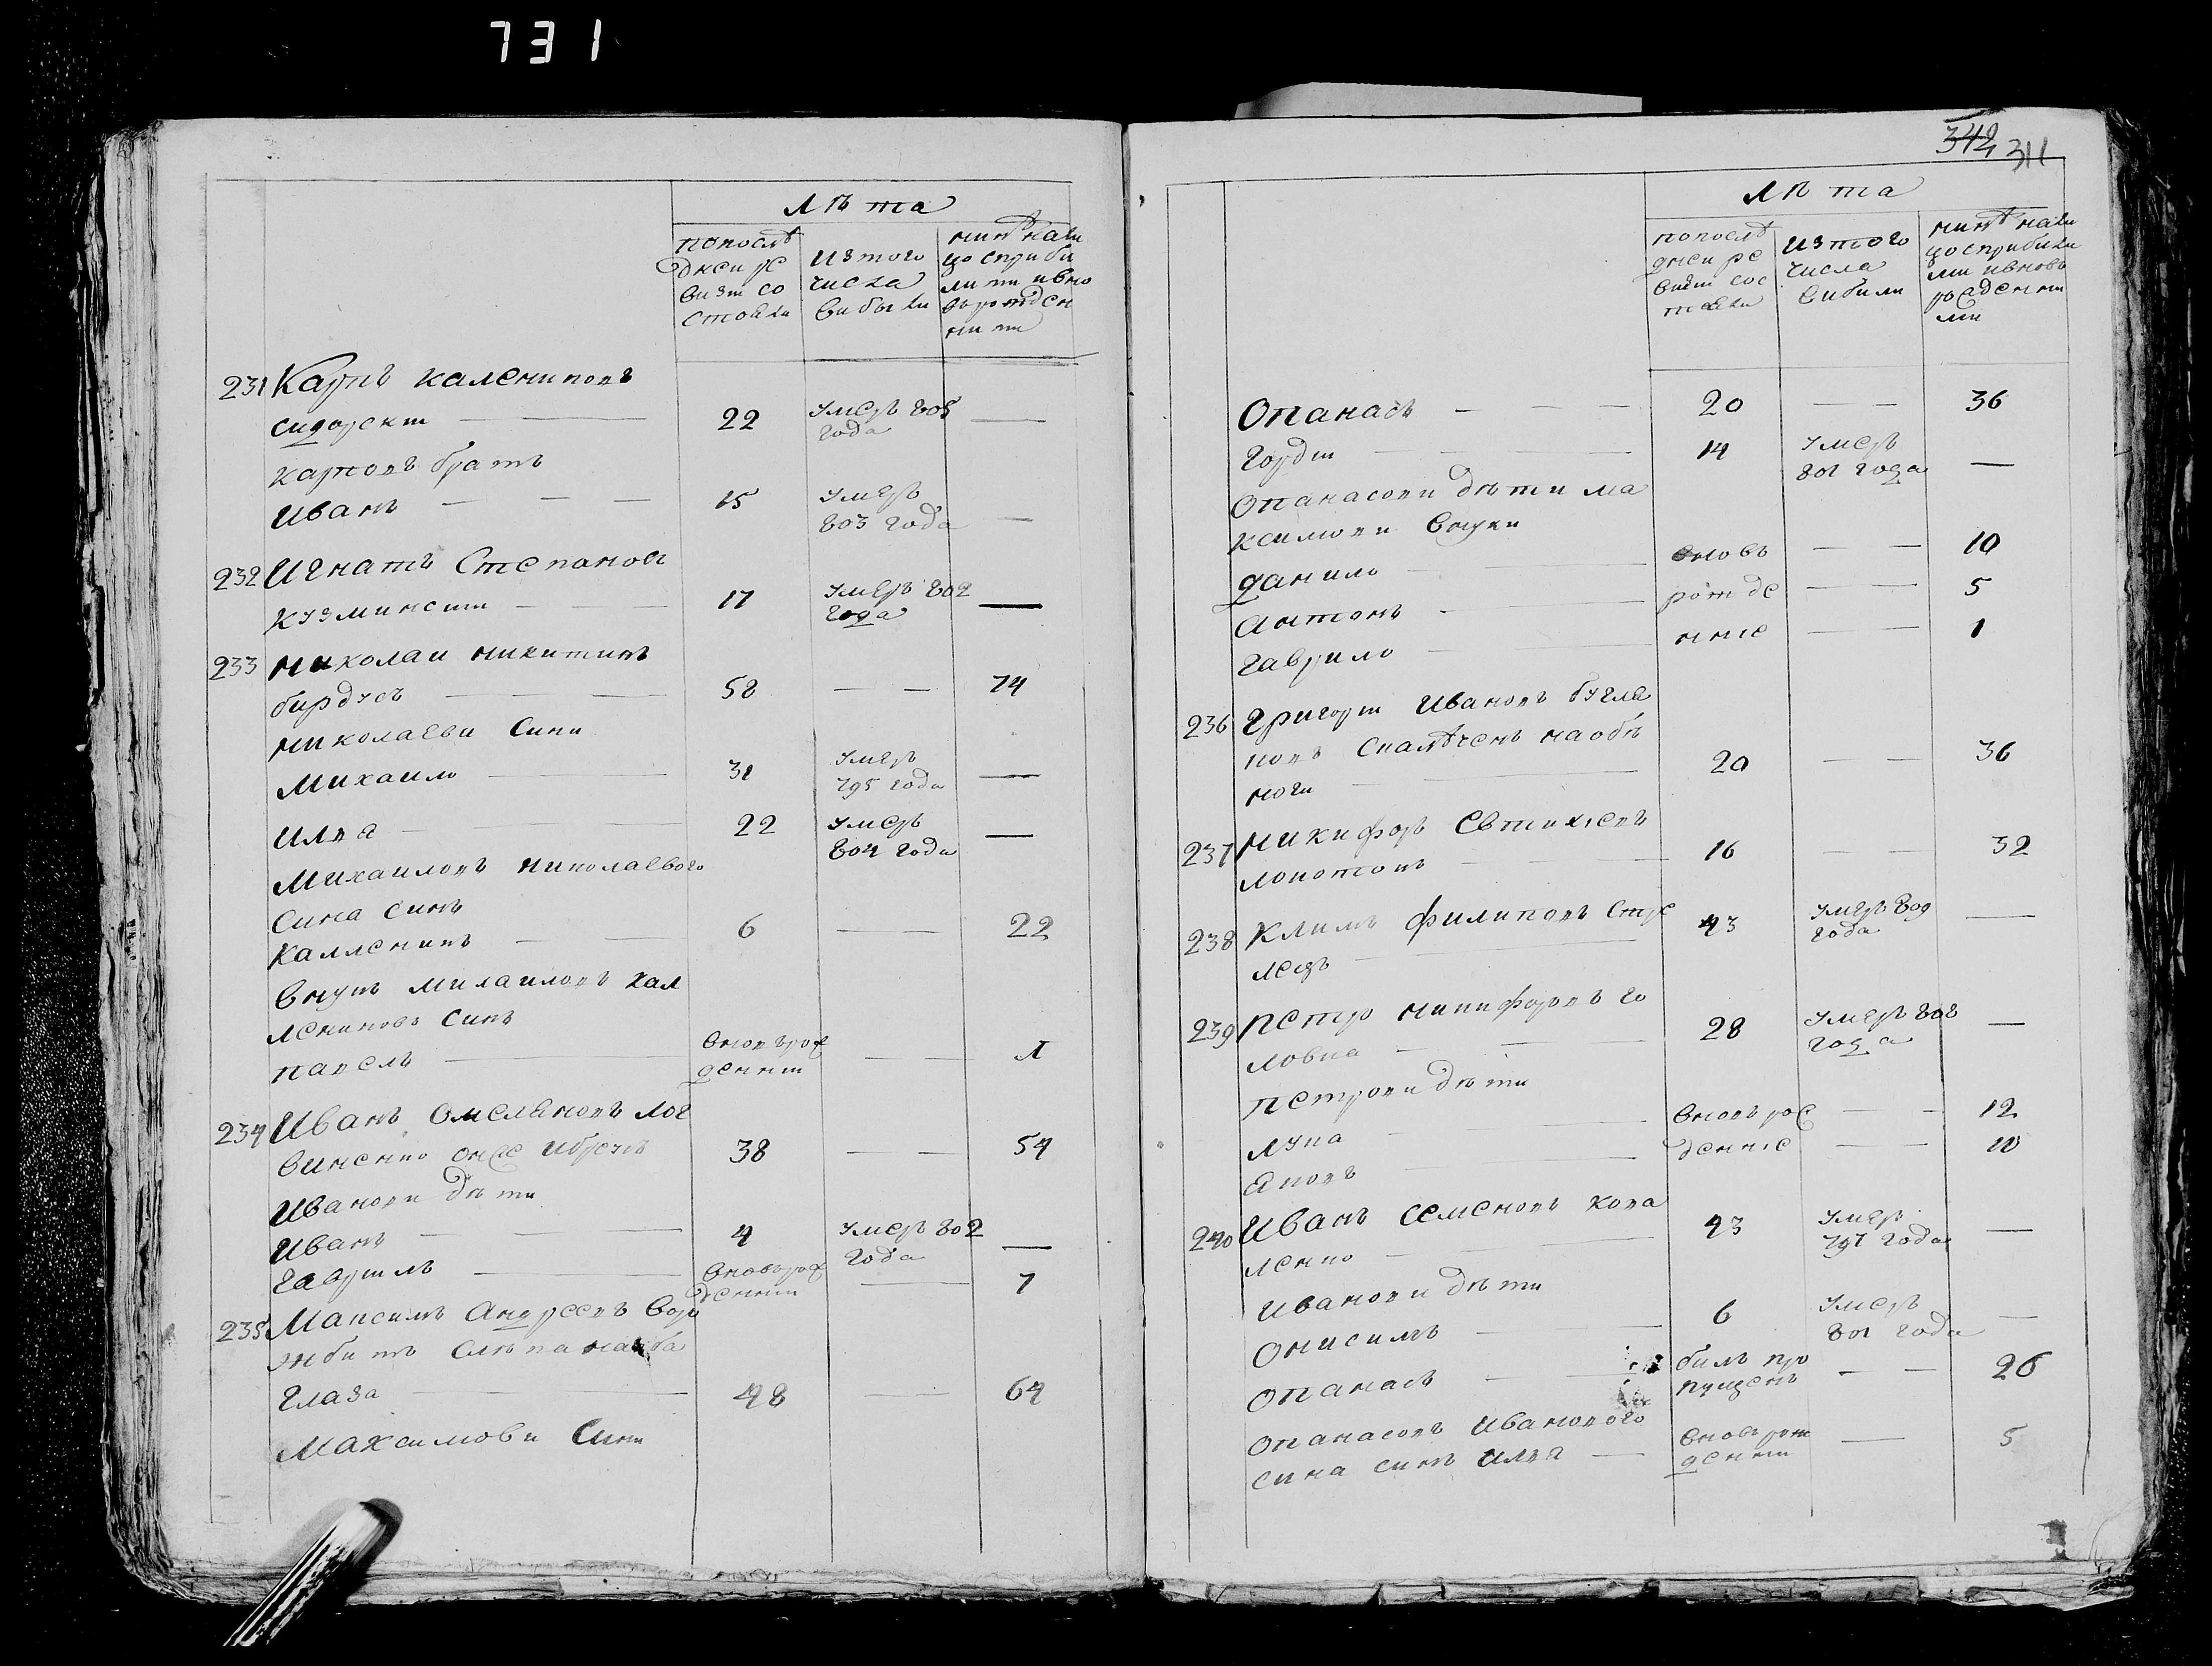 731
лѣта
попослѣ
днеи ре
визи со
стояли
изтого
числа
выбыли
нинѣ нали
цо сприбы
лыми ивно
въ рожден
ними
231 Карпъ калениковъ
сидоренко 22 умеръ 805
года
карповъ братъ
иванъ 15 умеръ
803 года
232 Игнатъ Степановъ
кузминский 17 умеръ 802
года
233 николаи никитинъ
бирдусъ 58 74
николаеви сини
михаило 31 умеръ
795 года
илия 22 умеръ
804 года
михаиловъ николаевого
сина синъ
калленикъ 6 22
внукъ михаиловъ кал
лениковъ синъ
павелъ вновърож
денни 1
234 Иванъ омеляновъ лог
виненко 38 54
ивановы дѣти
иванъ 4 умеръ 802
года
гавриилъ вноворож
денни 7
235 Максимъ андреевъ вор
жбитъ слѣпанаоба
глаза 48 64
максимови сини
342 311
лѣта
попослѣ
днеи ре
визии сос
тояли
изтого
числа
вибили
нинѣ нали
цо сприбили
ми ивновъ
рожденни
ми
Опанасъ 20 36
горди 14 умеръ
801 года
опанасови дѣти ма
ксимови внуки
данило вновъ 10
антонъ рожде 5
гаврило нние 1
236 григори ивановъ бугла
ковъ скалѣченъ наобѣ
ноги 20 36
237 никифоръ евтихиевъ
локотошъ 16 32
238 климъ филиповъ стре
лецъ 43 умеръ 809
года
239 петръ никифоровъ го
ловка 28 умеръ 808
года
петрови дѣти
лука вновъ рож 12
яковъ дение 10
240 иванъ семеновъ кова
ленко 43 умеръ
797 года
иванови дѣти
онисимъ 6 умеръ
801 года
опанасъ билъ про
пущенъ 26
опанасовъ иванового
сина синъ илия вновърож
денни 5